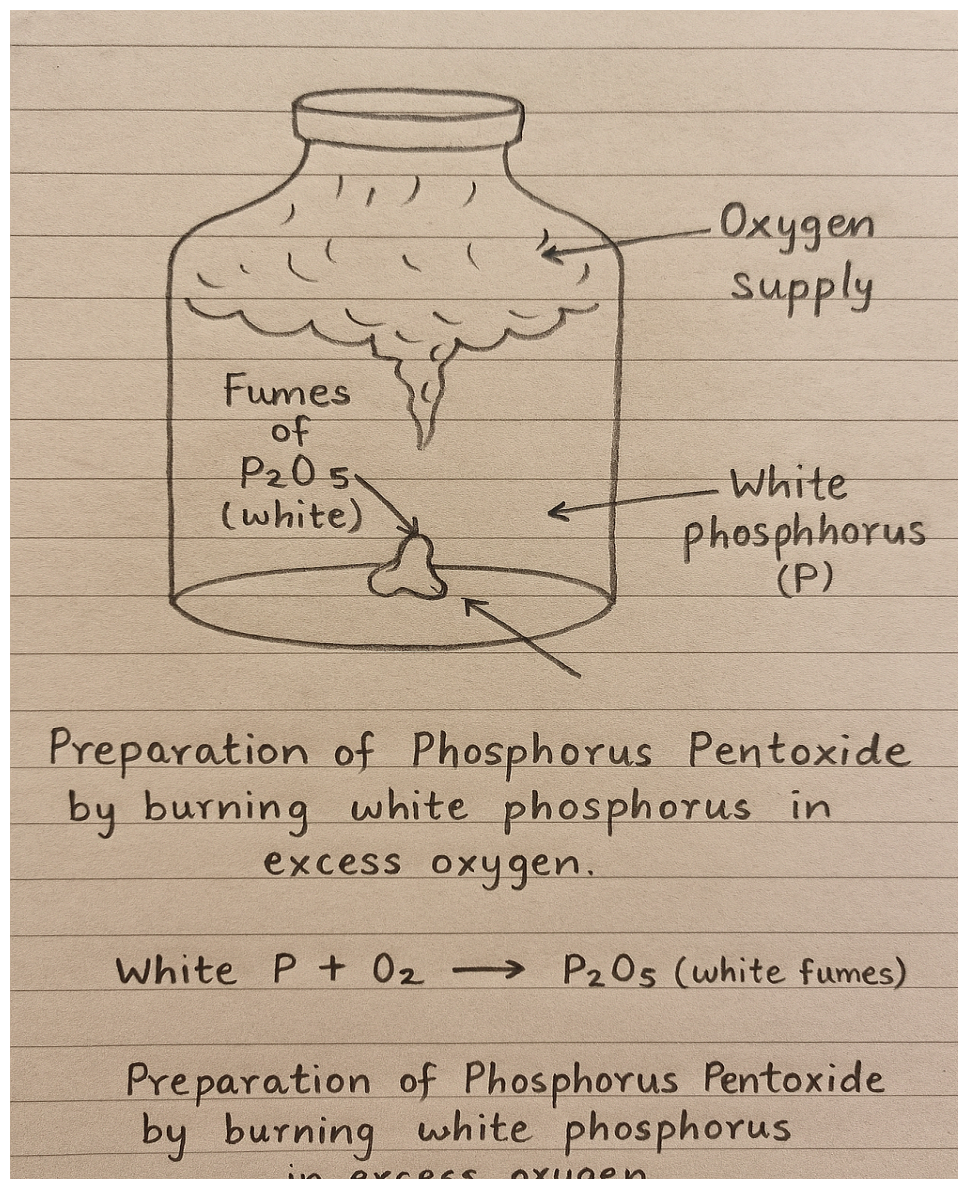 Oxygen
supply
Fumes
of
P₂O 5
(white)
White
phosphhorus
(P)
Preparation of Phosphorus Pentoxide
by burning white phosphorus in
excess oxygen.
White P + O₂ ⟶ P₂O₅ (white fumes)
Preparation of Phosphorus Pentoxide
by burning white phosphorus
in excess oxygen